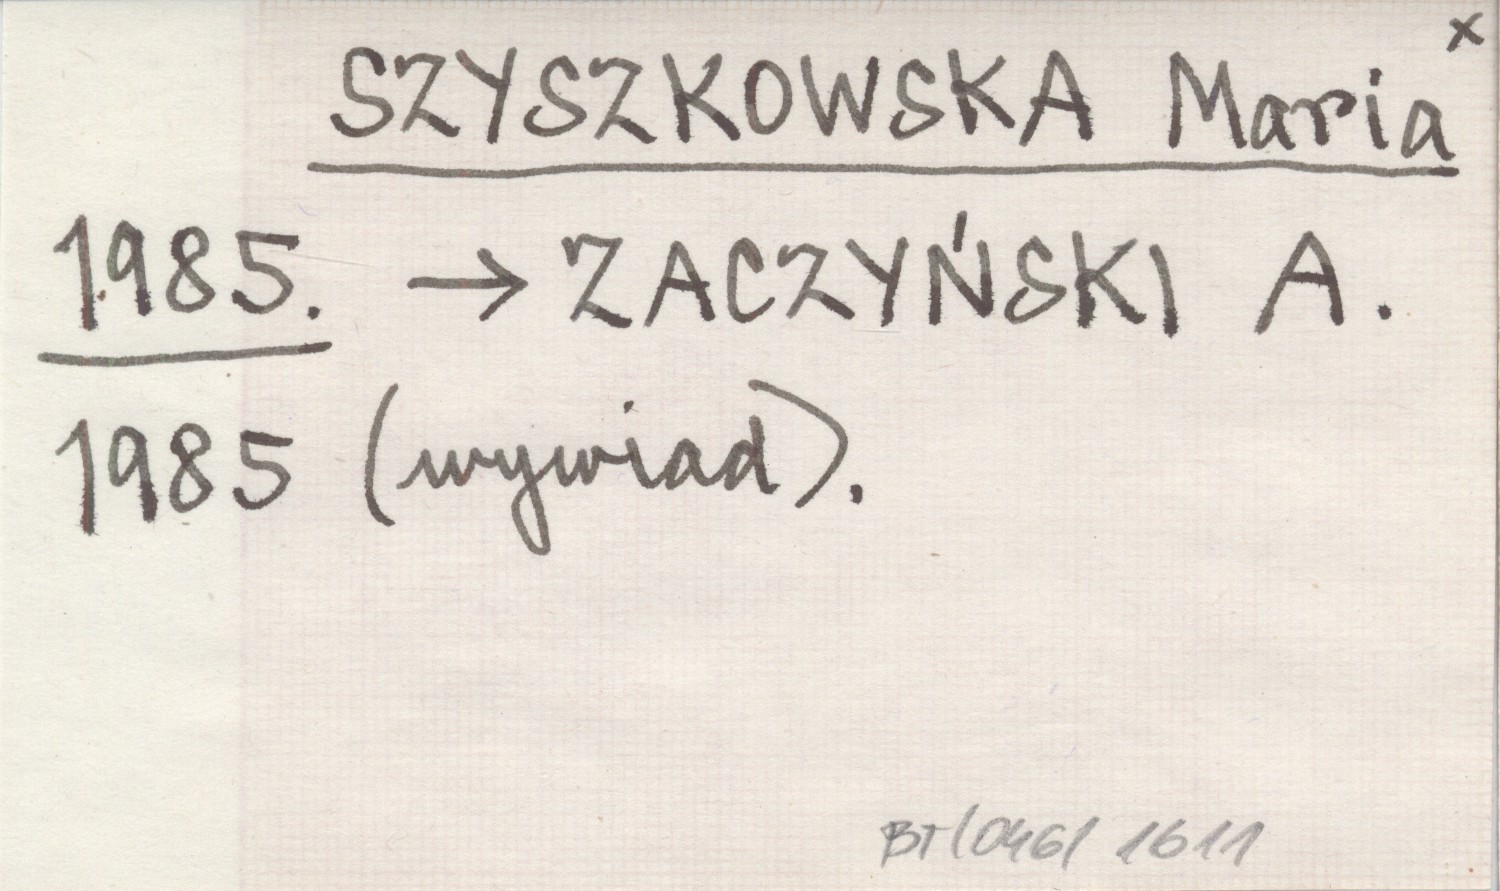 x
SZYSZKOWSKA Maria
1985. → ZACZYŃSKI A.
1985 (wywiad).
BT/046/ 1611